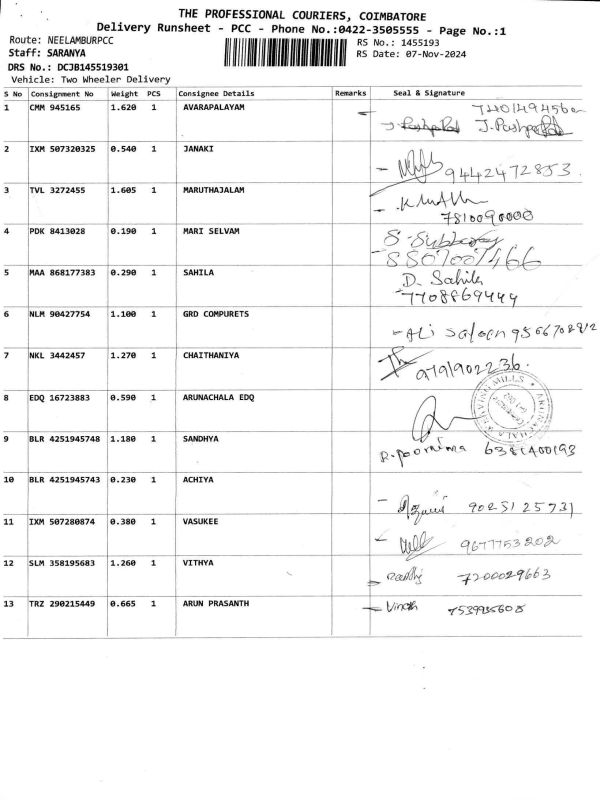 THE PROFESSIONAL COURIERS, COIMBATORE
Delivery Runsheet - PCC - Phone No.:0422-3505555 - Page No.:1
Route: NEELAMBURPCC
RS No.: 1455193
Staff: SARANYA
RS Date: 07-Nov-2024
DRS No.: DCJB145519301
Vehicle: Two Wheeler Delivery
S No Consignment No Weight PCS Consignee Details Remarks Seal & Signature
1 CMM 945165 1.620 1 AVARAPALAYAM
2 IXM 507320325 0.540 1 JANAKI 9442472853
3 TVL 3272455 1.605 1 MARUTHAJALAM
7810090000
4 PDK 8413028 0.190 1 MARI SELVAM
8807007466
5 MAA 868177383 0.290 1 SAHILA D. Sahila
7708869449
6 NLM 90427754 1.100 1 GRD COMPURETS
7 NKL 3442457 1.270 1 CHAITHANIYA 9791902236
8 EDQ 16723883 0.590 1 ARUNACHALA EDQ
9 BLR 4251945748 1.180 1 SANDHYA R. Poornima 6381400193
10 BLR 4251945743 0.230 1 ACHIYA 9025125731
11 IXM 507280874 0.380 1 VASUKEE 9677753202
12 SLM 358195683 1.260 1 VITHYA 7200029663
13 TRZ 290215449 0.665 1 ARUN PRASANTH